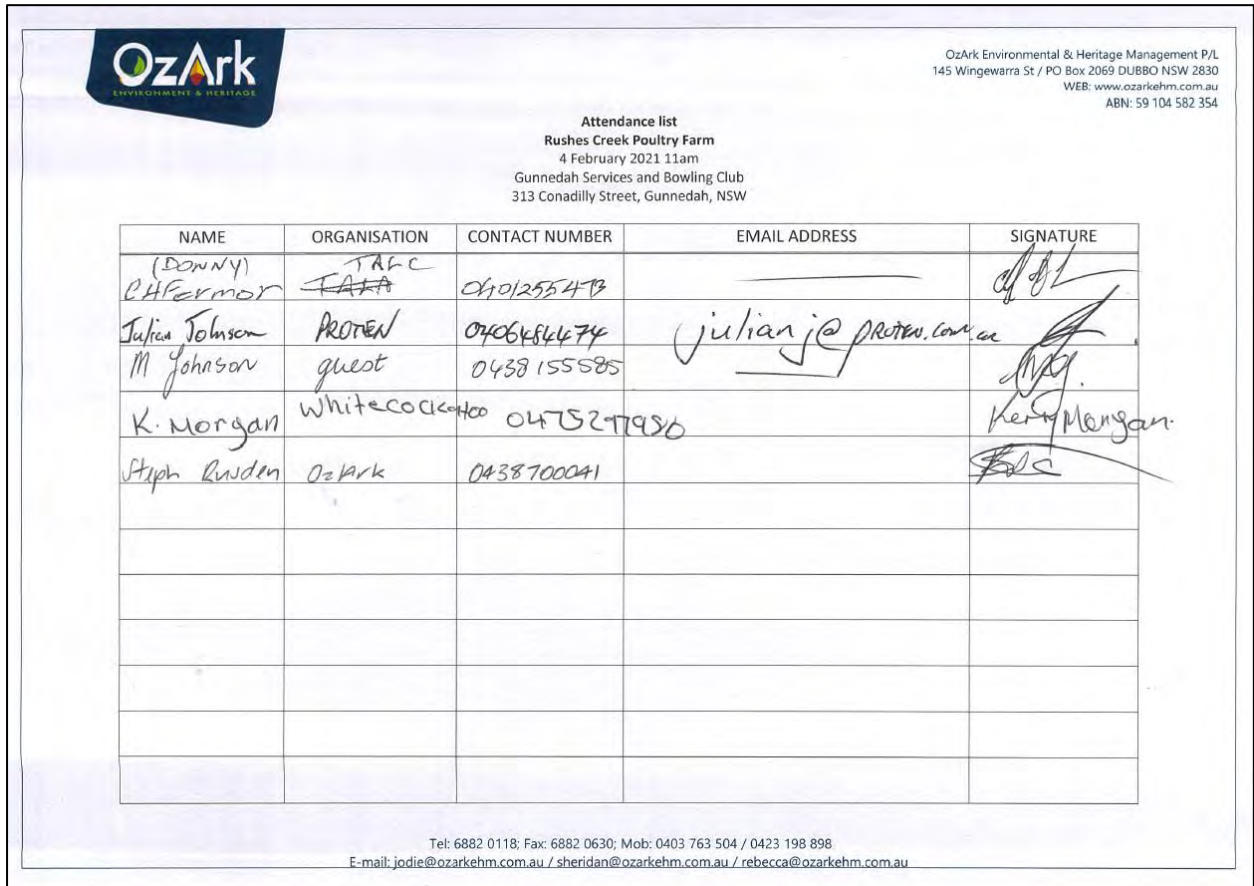 OzArk
ENVIRONMENT & HERITAGE
OzArk Environmental & Heritage Management P/L
145 Wingewarra St / PO Box 2069 DUBBO NSW 2830
WEB: www.ozarkehm.com.au
ABN: 59 104 582 354
Attendance list
Rushes Creek Poultry Farm
4 February 2021 11am
Gunnedah Services and Bowling Club
313 Conadilly Street, Gunnedah, NSW
NAME ORGANISATION CONTACT NUMBER EMAIL ADDRESS SIGNATURE
(DONNY) TALC
CHFermor 0401255473
Julian Johnson PROTEN 0406484474 julianj@PROTEN.com.au
M Johnson guest 0438155585
K. Morgan Whitecockatoo 0475297950 Kerry Morgan.
Steph Rusden OzArk 0438700041
Tel: 6882 0118; Fax: 6882 0630; Mob: 0403 763 504 / 0423 198 898
E-mail: jodie@ozarkehm.com.au / sheridan@ozarkehm.com.au / rebecca@ozarkehm.com.au